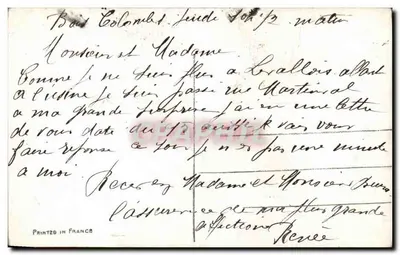 Bois Colombes Jeudi 10h 1/2 matin
Monsieur et Madame
Comme je ne suis plus a Levallois allant
a l'usine je suis passé rue Martinval
a ma grande surprise j'ai eu une lettre
de vous date du 17 je vais vous
faire reponse a soir je n'ai pas une minute
a moi.
Recevez Madame et Monsieur
l'assurence de ma plus grande
afection
Renée
PRINTED IN FRANCE